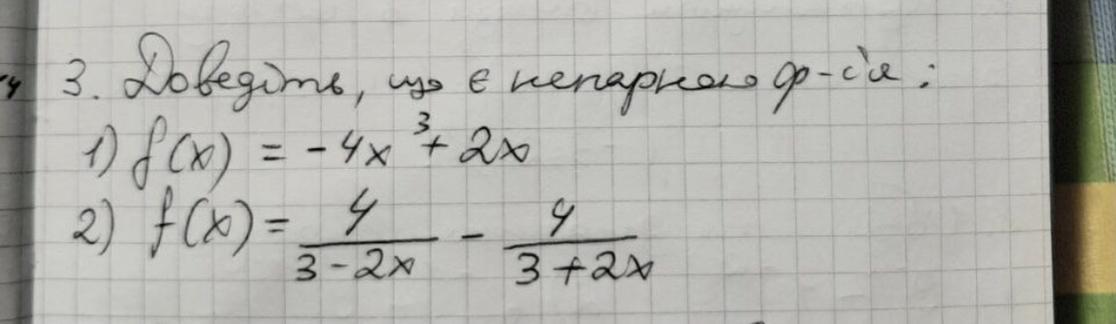 3. Доведіть, що є непарною ф-ія:
1) f(x) = -4x³ + 2x
2) f(x) = 4/(3 - 2x) - 4/(3 + 2x)